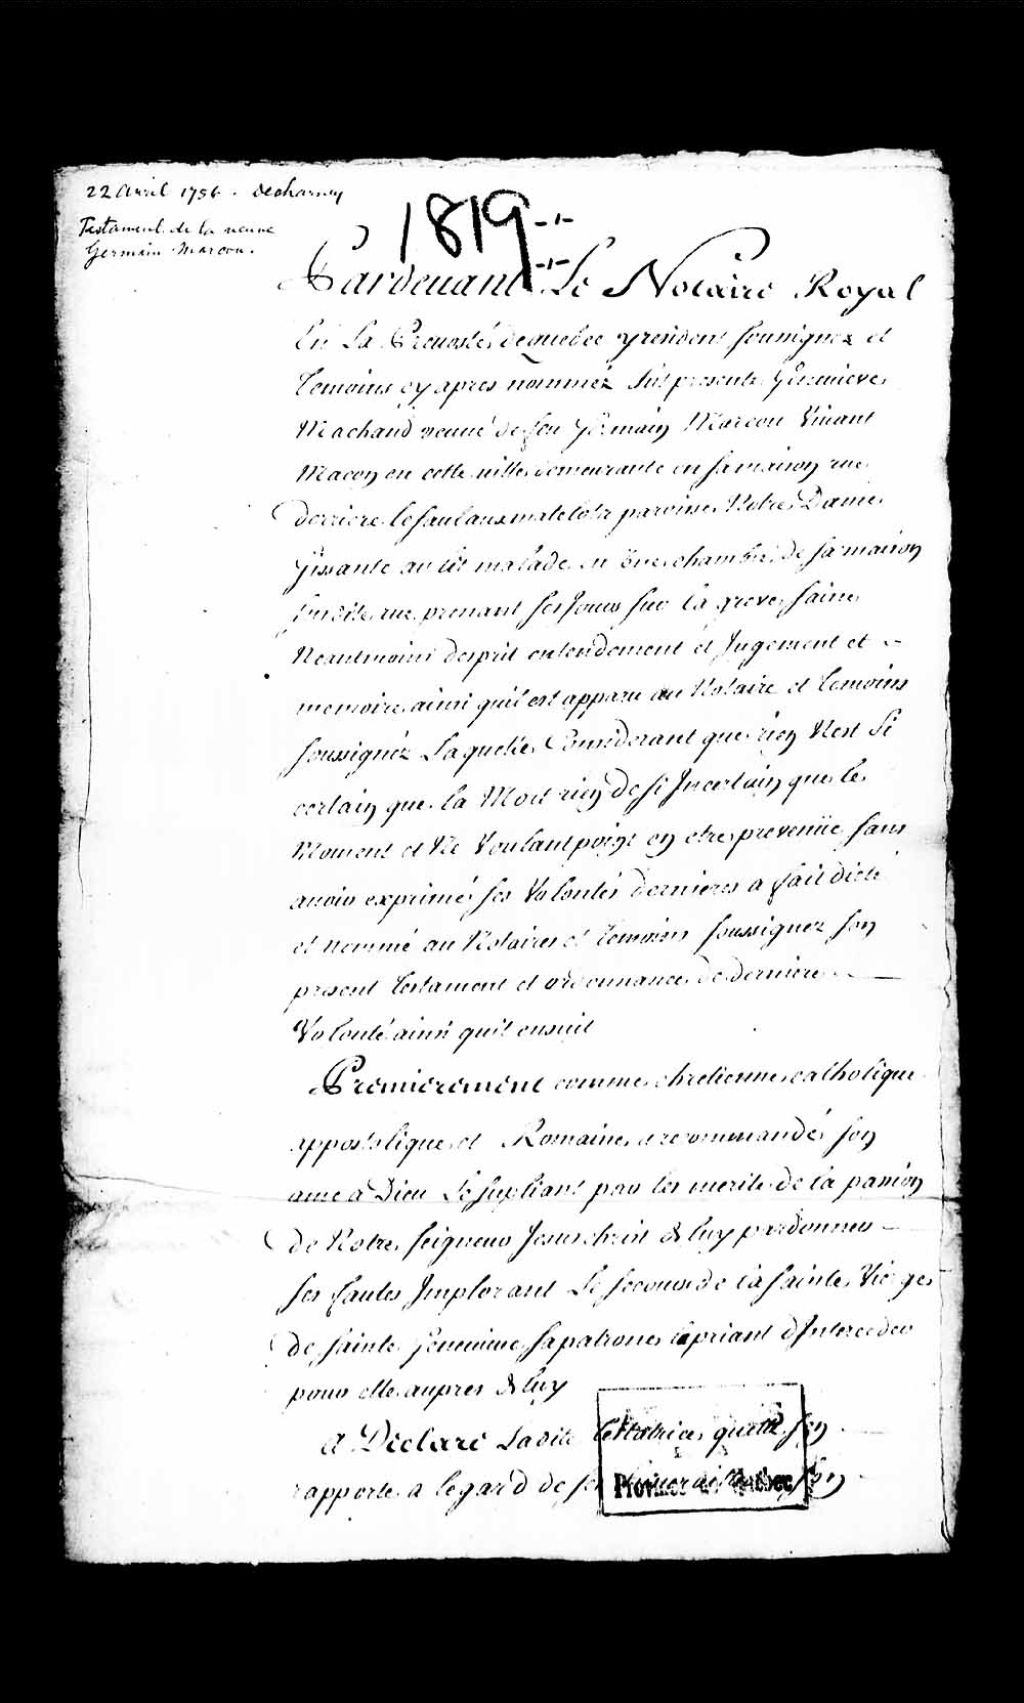 22 avril 1756 - decharnay
Testament de la veuve
Germain Marcou.
1819
Pardeuant Le Notaire Royal
En La Preuosté de quebec y resident soussignez et
temoins cy apres nomméz fut presente Genevieve
Machand veuve de feu Germain Marcou Vivant
Macon en cette ville demeurante en sa maison rue
derriere le sault au matelot parroisse Notre Dame
Gissante au lit malade en une chambre de sa maison
susdite rue prenant ses Jours sur la greve saine
Neantmoins desprit entendement et Jugement et
memoire ainsi quil est apparu au Notaire et temoins
soussignéz Laquelle Considerant que rien Nest Si
certain que la Mort rien de si Incertain que le
Moment et Ne Voulant point en etre prevenüe sans
avoir exprimé ses Volontés dernieres a fait dicté
et nommé au Notaire et temoins soussignez son
present testament et ordonnance de derniere
Volonté ainsi quil ensuit
Premierement comme chretienne catholique
appostolique et Romaine a recommandé son
ame a Dieu Le supliant par les merite de la passion
de Notre seigneur Jesus christ de luy pardonner
ses fautes Implorant Le secours de la sainte Vierge
de sainte Genevieve sa patrone la priant dInterceder
pour elle aupres de luy
A Declaré Ladite testatrice quelle sen
rapporte a legard de ses
Province de Québec